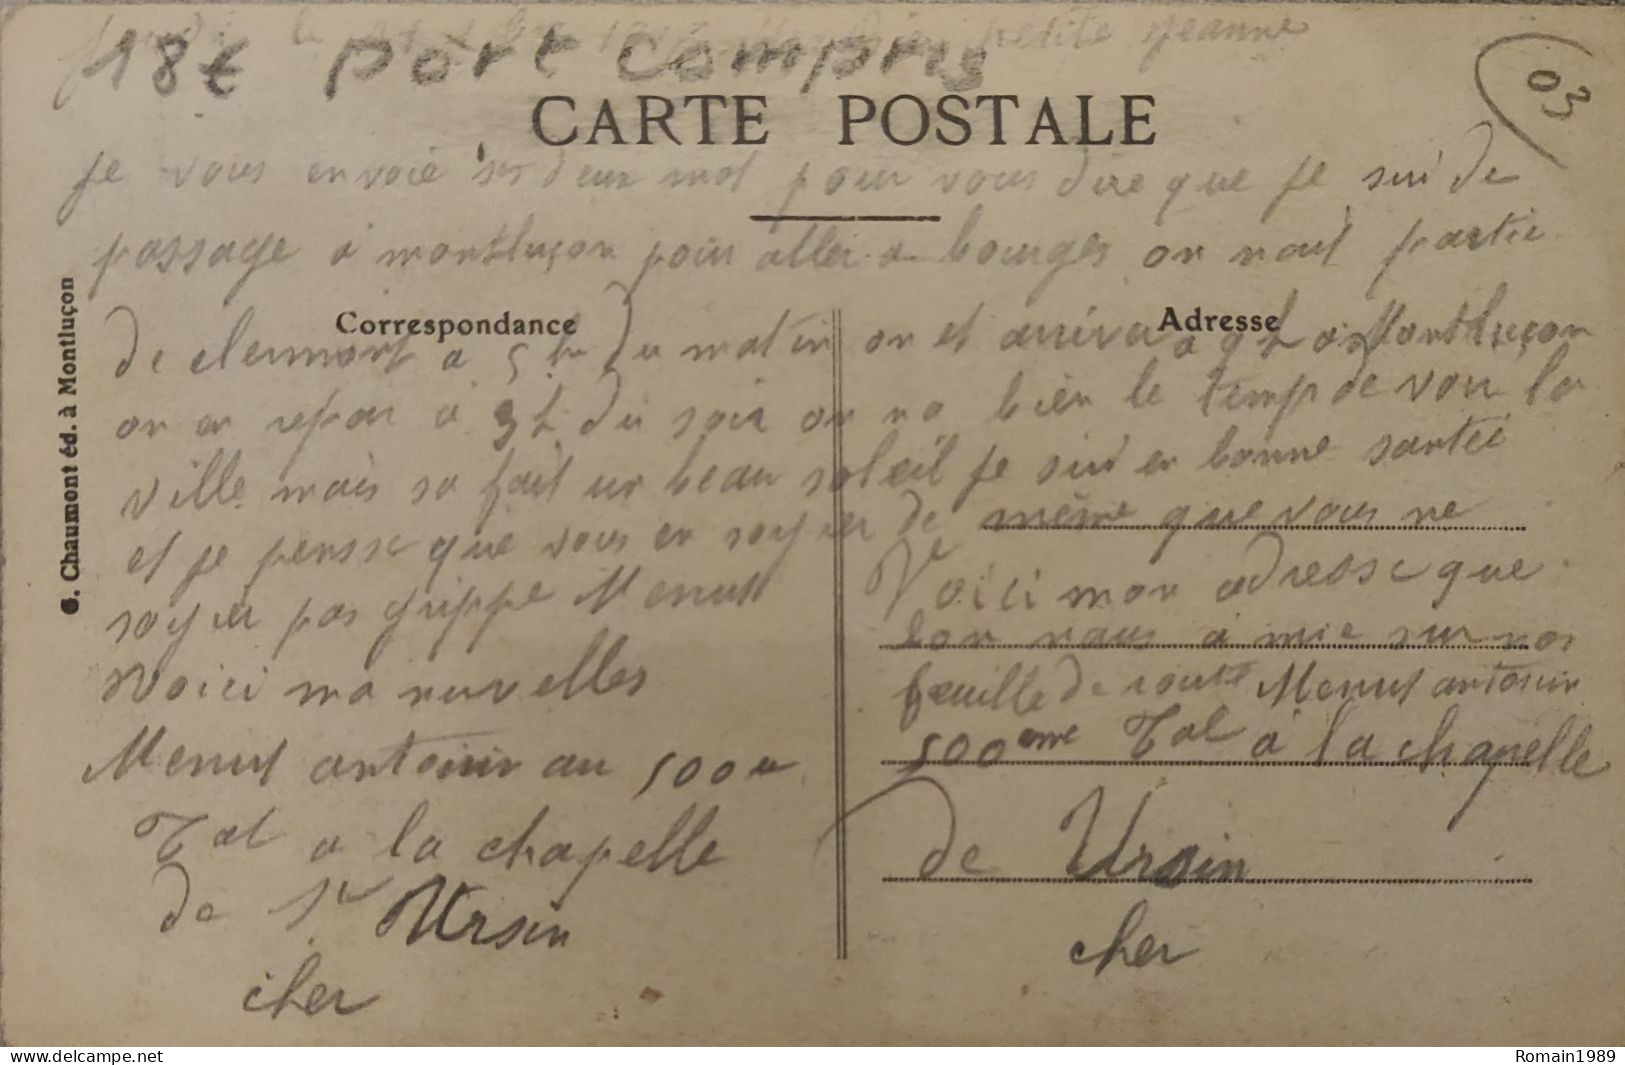 petite Jeanne
18€ port compris
03
CARTE POSTALE
je vous envoie ses deux mot pour vous dire que je sui de
passage a montluçon pour aller a bourges on nait partie
Correspondance
Adresse
de clermont a 5h du matin on et arriva a 9h a Montluçon
on en repar a 3h du soir on na bien le temp de voir la
ville mais sa fait un beau soleil je sui en bonne santée
et je pensse que vous en soyier de même que vous ne
soyier pas grippe Menut
Voici mon adresse que
lon naus a mie sur nos
Voici ma nuvelles
feuille de route Menut antoinin
Menut antoinin au 500e
500eme Tal a la chapelle
Tal a la chapelle
de Ursin
de St Ursin
cher
cher
G. Chaumont éd. à Montluçon
www.delcampe.net
Romain1989